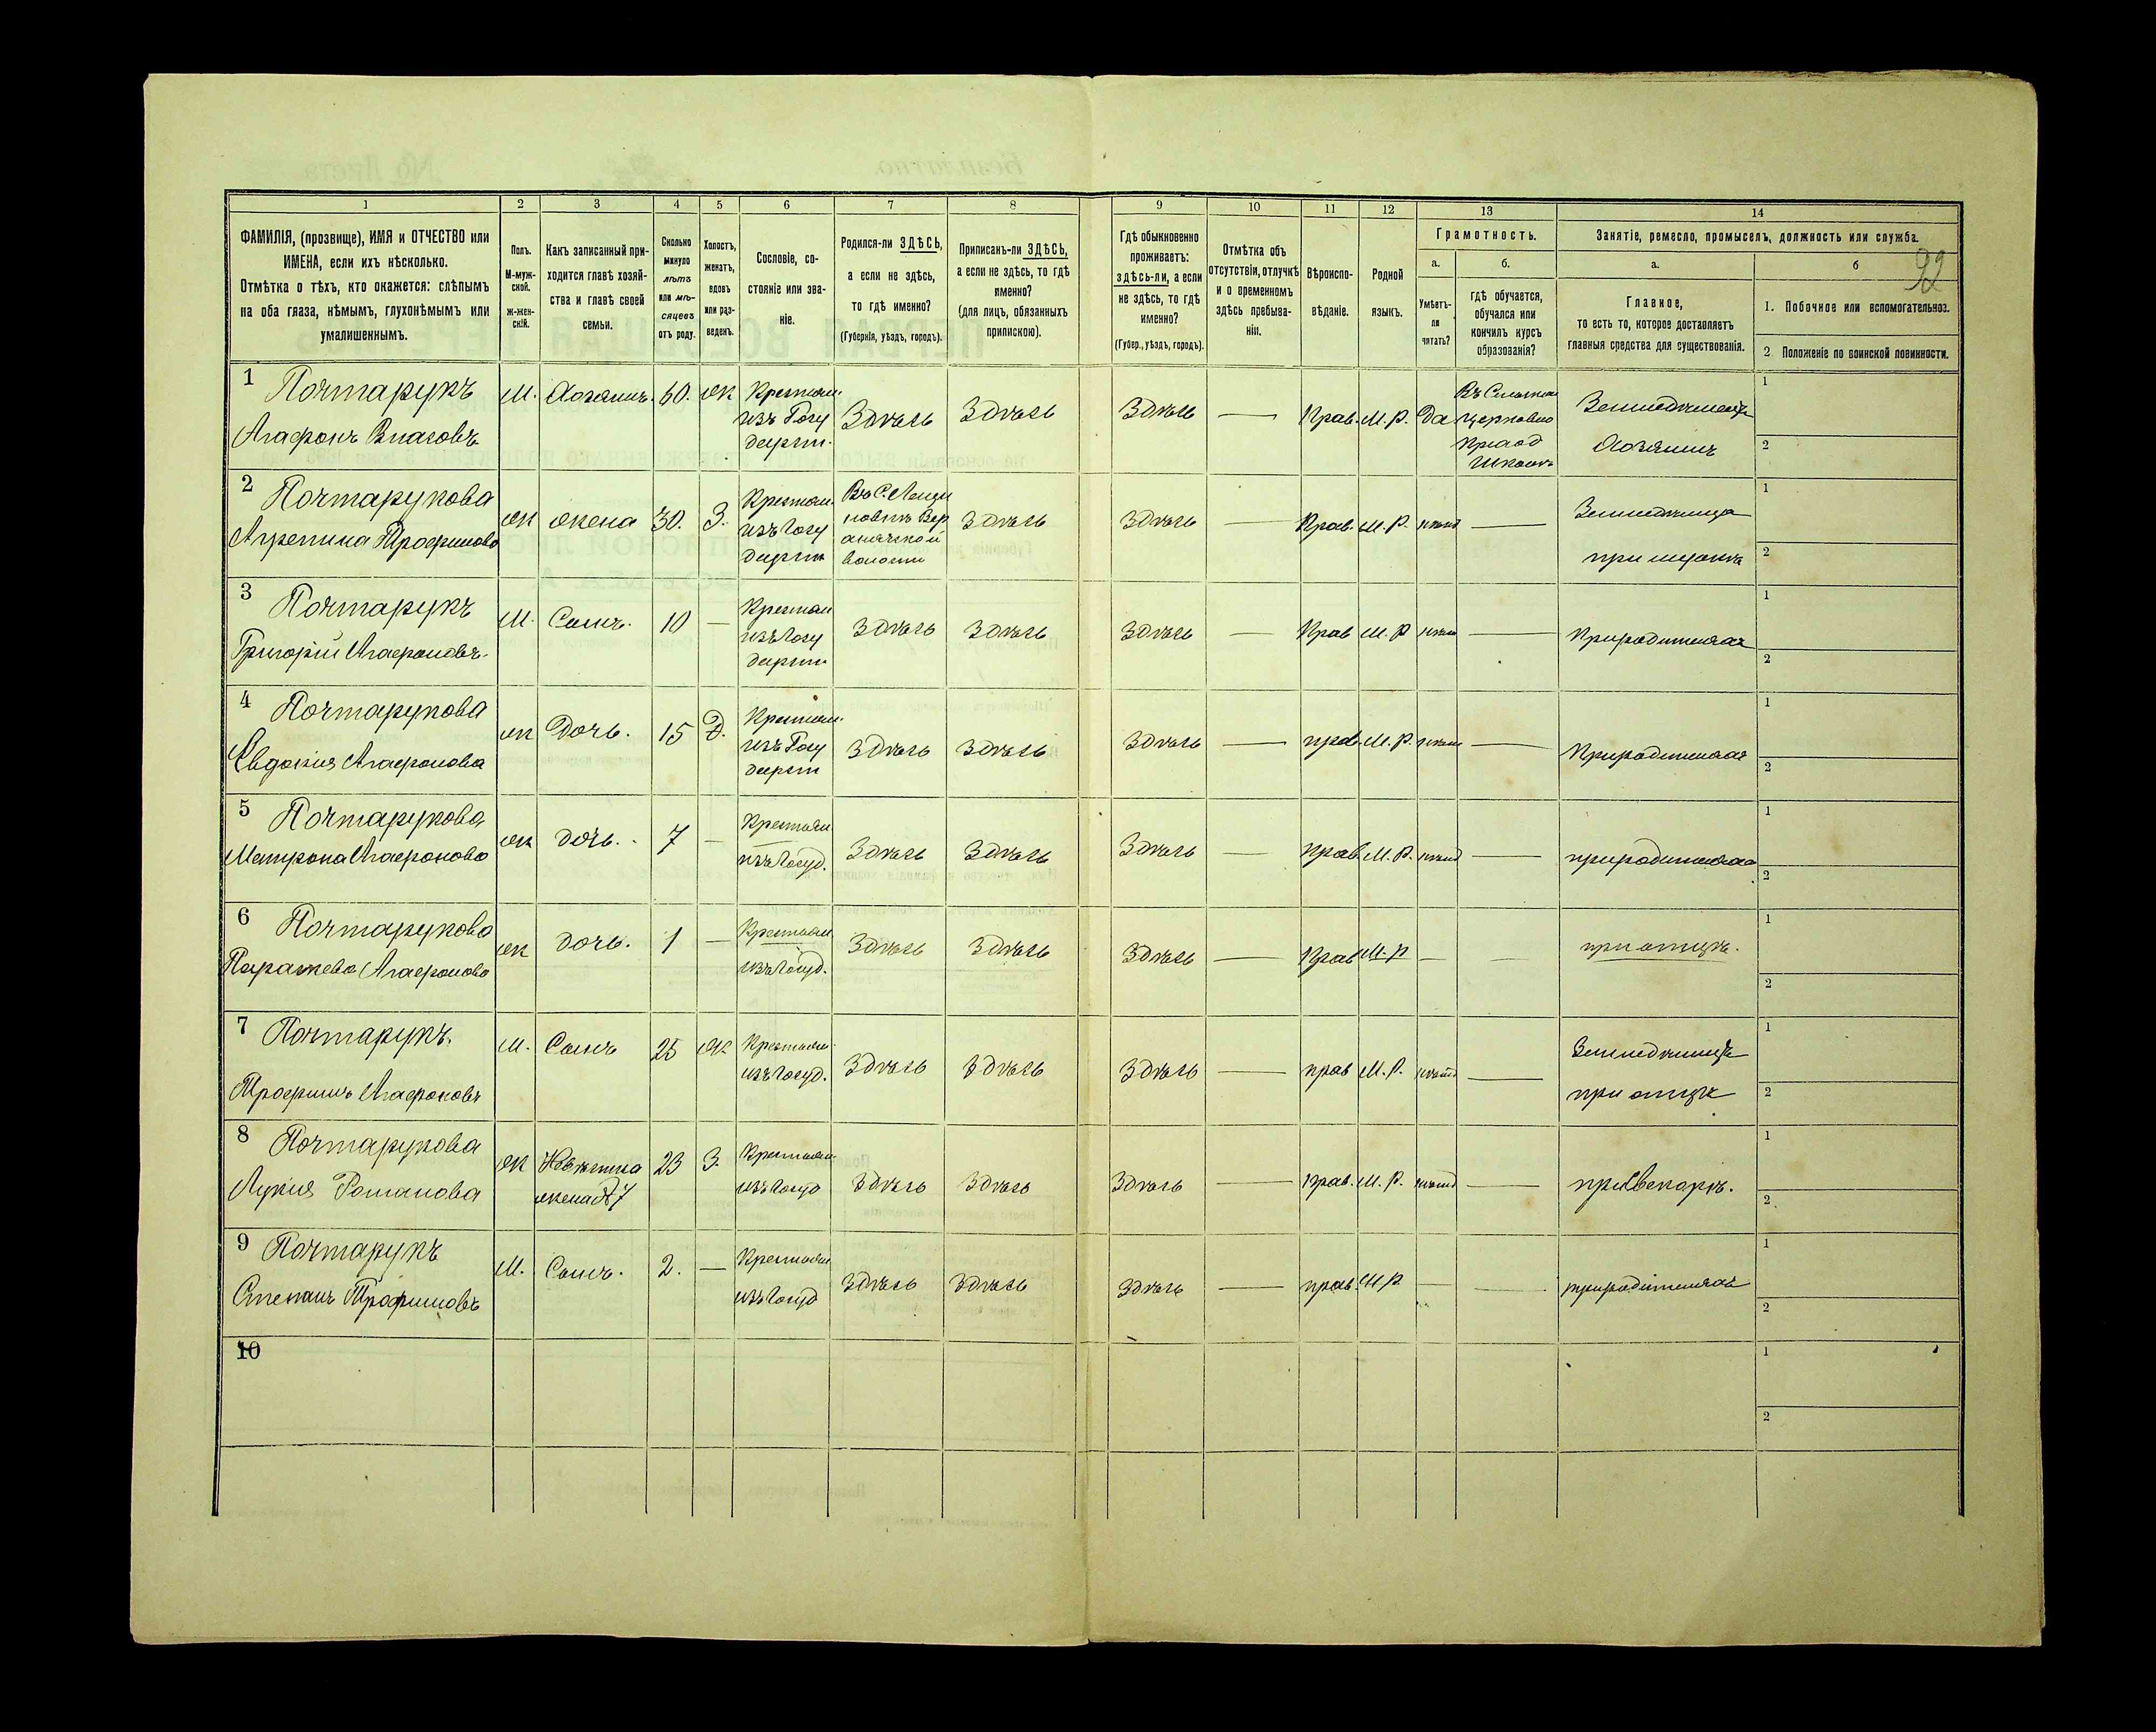 22
1 2 3 4 5 6 7 8 9 10 11 12 13 14
ФАМИЛІЯ, (прозвище), ИМЯ и ОТЧЕСТВО или
ИМЕНА, если ихъ нѣсколько.
Отмѣтка о тѣхъ, кто окажется: слѣпымъ
на оба глаза, нѣмымъ, глухонѣмымъ или
умалишеннымъ.
Полъ.
М-муж-
ской.
ж-жен-
скій.
Какъ записанный при-
ходится главѣ хозяй-
ства и главѣ своей
семьи.
Сколько
минуло
лѣтъ
или мѣ-
сяцевъ
отъ роду.
Холостъ,
женатъ,
вдовъ
или раз-
веденъ.
Сословіе, со-
стояніе или зва-
ніе.
Родился-ли ЗДѢСЬ,
а если не здѣсь,
то гдѣ именно?
(Губернія, уѣздъ, городъ).
Приписанъ-ли ЗДѢСЬ,
а если не здѣсь, то гдѣ
именно?
(для лицъ, обязанныхъ
припискою).
Гдѣ обыкновенно
проживаетъ:
здѣсь-ли, а если
не здѣсь, то гдѣ
именно?
(Губер., уѣздъ, городъ).
Отмѣтка объ
отсутствіи, отлучкѣ
и о временномъ
здѣсь пребыва-
ніи.
Вѣроиспо-
вѣданіе.
Родной
языкъ.
Грамотность.
а. б.
Умѣетъ-
ли
читать?
гдѣ обучается,
обучался или
кончилъ курсъ
образованія?
Занятіе, ремесло, промыселъ, должность или служба.
а. б
Главное,
то есть то, которое доставляетъ
главныя средства для существованія.
1. Побочное или вспомогательное.
2. Положеніе по воинской повинности.
1 Почтарукъ
Агафонъ Власовъ
М. Хозяинъ. 60. Ж
Крестьян.
изъ Госу
дарст.
Здѣсь Здѣсь Здѣсь — Прав. М. Р. Да
церковно
приход
школѣ
Земледѣлецъ
Хозяинъ
1
2
2 Почтарукова
Агрепина Трофимова
Ж жена 30. З.
Крестьян.
изъ Госу
дарст
волости
Здѣсь Здѣсь — Прав. М. Р. —
Земледѣлица
при мужѣ
1
2
3 Почтарукъ
Григорій Агафоновъ.
М. Сынъ. 10 —
Крестьян
изъ Госу
дарст
Здѣсь Здѣсь Здѣсь — Прав М. Р —
При родителяхъ
1
2
4 Почтарукова
Евдокия Агафонова
Ж Дочь. 15 Д.
Крестьян.
изъ Госу
дарст
Здѣсь Здѣсь Здѣсь — прав. М. Р. —
При родителяхъ
1
2
5 Почтарукова
Матрона Агафонова
Ж дочь. 7 —
Крестьян
изъ Госуд.
Здѣсь Здѣсь Здѣсь — Прав М. Р. —
при родителяхъ
1
2
6 Почтарукова
Параскева Агафонова
Ж дочь. 1 —
Крестьян
изъ Госуд.
Здѣсь Здѣсь Здѣсь — Прав М. Р — —
при отцѣ.
1
2
7 Почтарукъ.
Трофимъ Агафоновъ
М. Сынъ 25 Ж
Крестьян.
изъ Госуд.
Здѣсь Здѣсь Здѣсь — прав М. Р. —
Земледѣлецъ
при отцѣ
1
2
8 Почтарукова
Лукия Романова
Ж Невѣстка
жена № 7
23 З.
Крестьян
изъ Госуд
Здѣсь Здѣсь Здѣсь — прав. М. Р. —
при свекорѣ.
1
2
9 Почтарукъ
Степанъ Трофимовъ
М. Сынъ. 2. —
Крестьян
изъ Госуд
Здѣсь Здѣсь Здѣсь — прав. М. Р — —
при родителяхъ
1
2
10
1
2